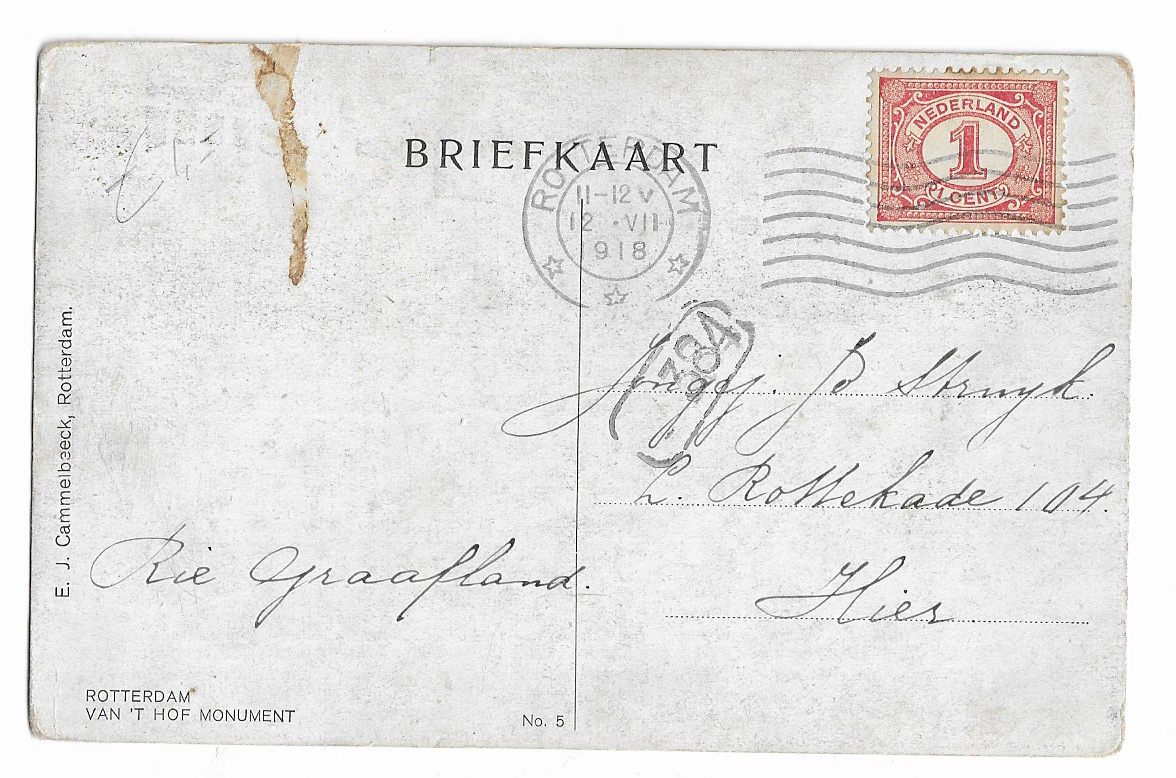 BRIEFKAART
NEDERLAND
1
1 CENT
ROTTERDAM
11-12 V
12 · VII
918
384
Jongej. Jo Struyk.
L. Rottekade 104.
Hier.
Rie Graafland.
E. J. Cammelbeeck, Rotterdam.
ROTTERDAM
VAN 'T HOF MONUMENT
No. 5